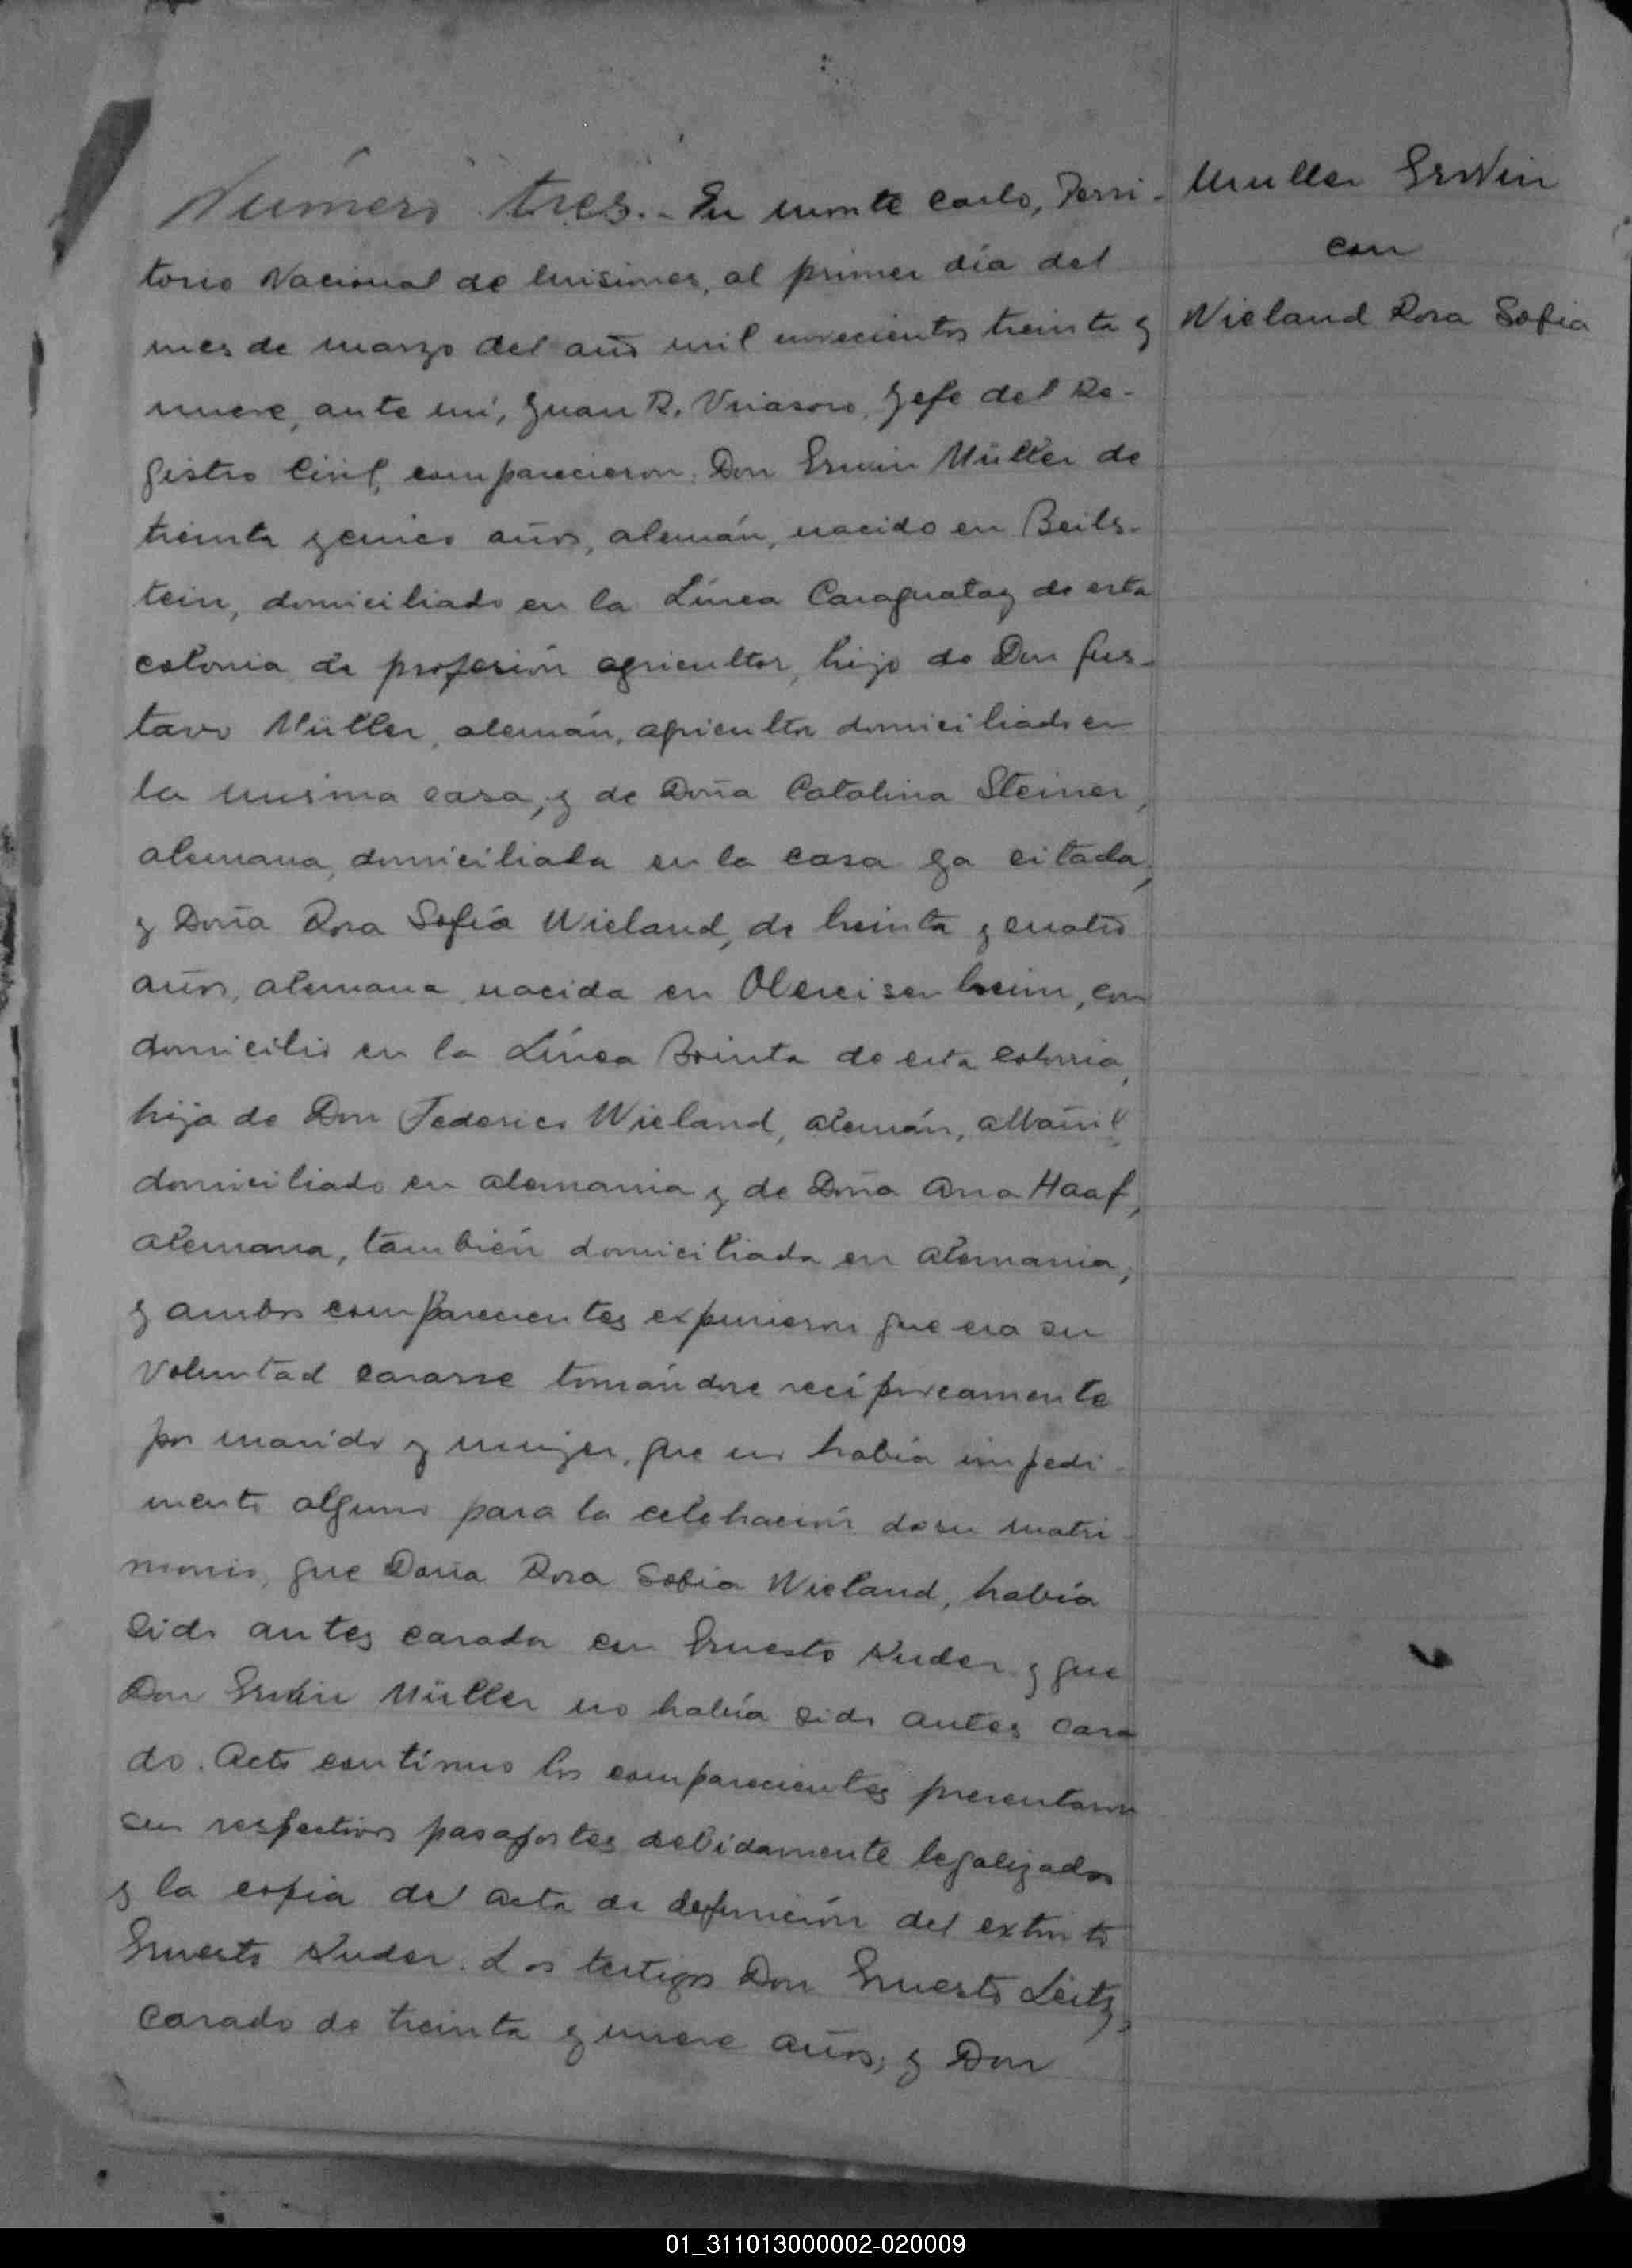 Número tres.- En monte Carlo, Terri-
torio Nacional de misiones, al primer día del
mes de marzo del año mil novecientos treinta y
nueve, ante mí, Juan R. Virasoro, Jefe del Re-
gistro Civil, comparecieron: Don Erwin Müller de
treinta y cinco años, alemán, nacido en Beils-
tein, domiciliado en la Línea Caraguatay de esta
colonia de profesión agricultor, hijo de Don Gus-
tavo Müller, alemán, agricultor domiciliado en
la misma casa, y de Doña Catalina Steiner,
alemana, domiciliada en la casa ya citada;
y Doña Rosa Sofía Wieland, de treinta y cuatro
años, alemana, nacida en con
domicilio en la Línea de esta colonia,
hija de Don Federico Wieland, alemán, albañil,
domiciliado en alemania y de Doña Ana Haaf,
alemana, también domiciliada en alemania;
y ambos comparecientes expusieron que era su
voluntad casarse tomándose recíprocamente
por marido y mujer, que no había impedi-
mento alguno para la celebración de su matri-
monio, que Doña Rosa Sofia Wieland, había
sido antes casada con Ernesto Kuder y que
Don Erwin Müller no había sido antes casa
do. Acto contínuo los comparecientes presentaron
sus respectivos pasaportes debidamente legalizados
y la copia del acta de defunción del extinto
Ernesto Kuder. Los testigos Don Ernesto Leitz,
casado de treinta y nueve años; y Don
Muller Erwin
con
Wieland Rosa Sofia
01_311013000002-020009